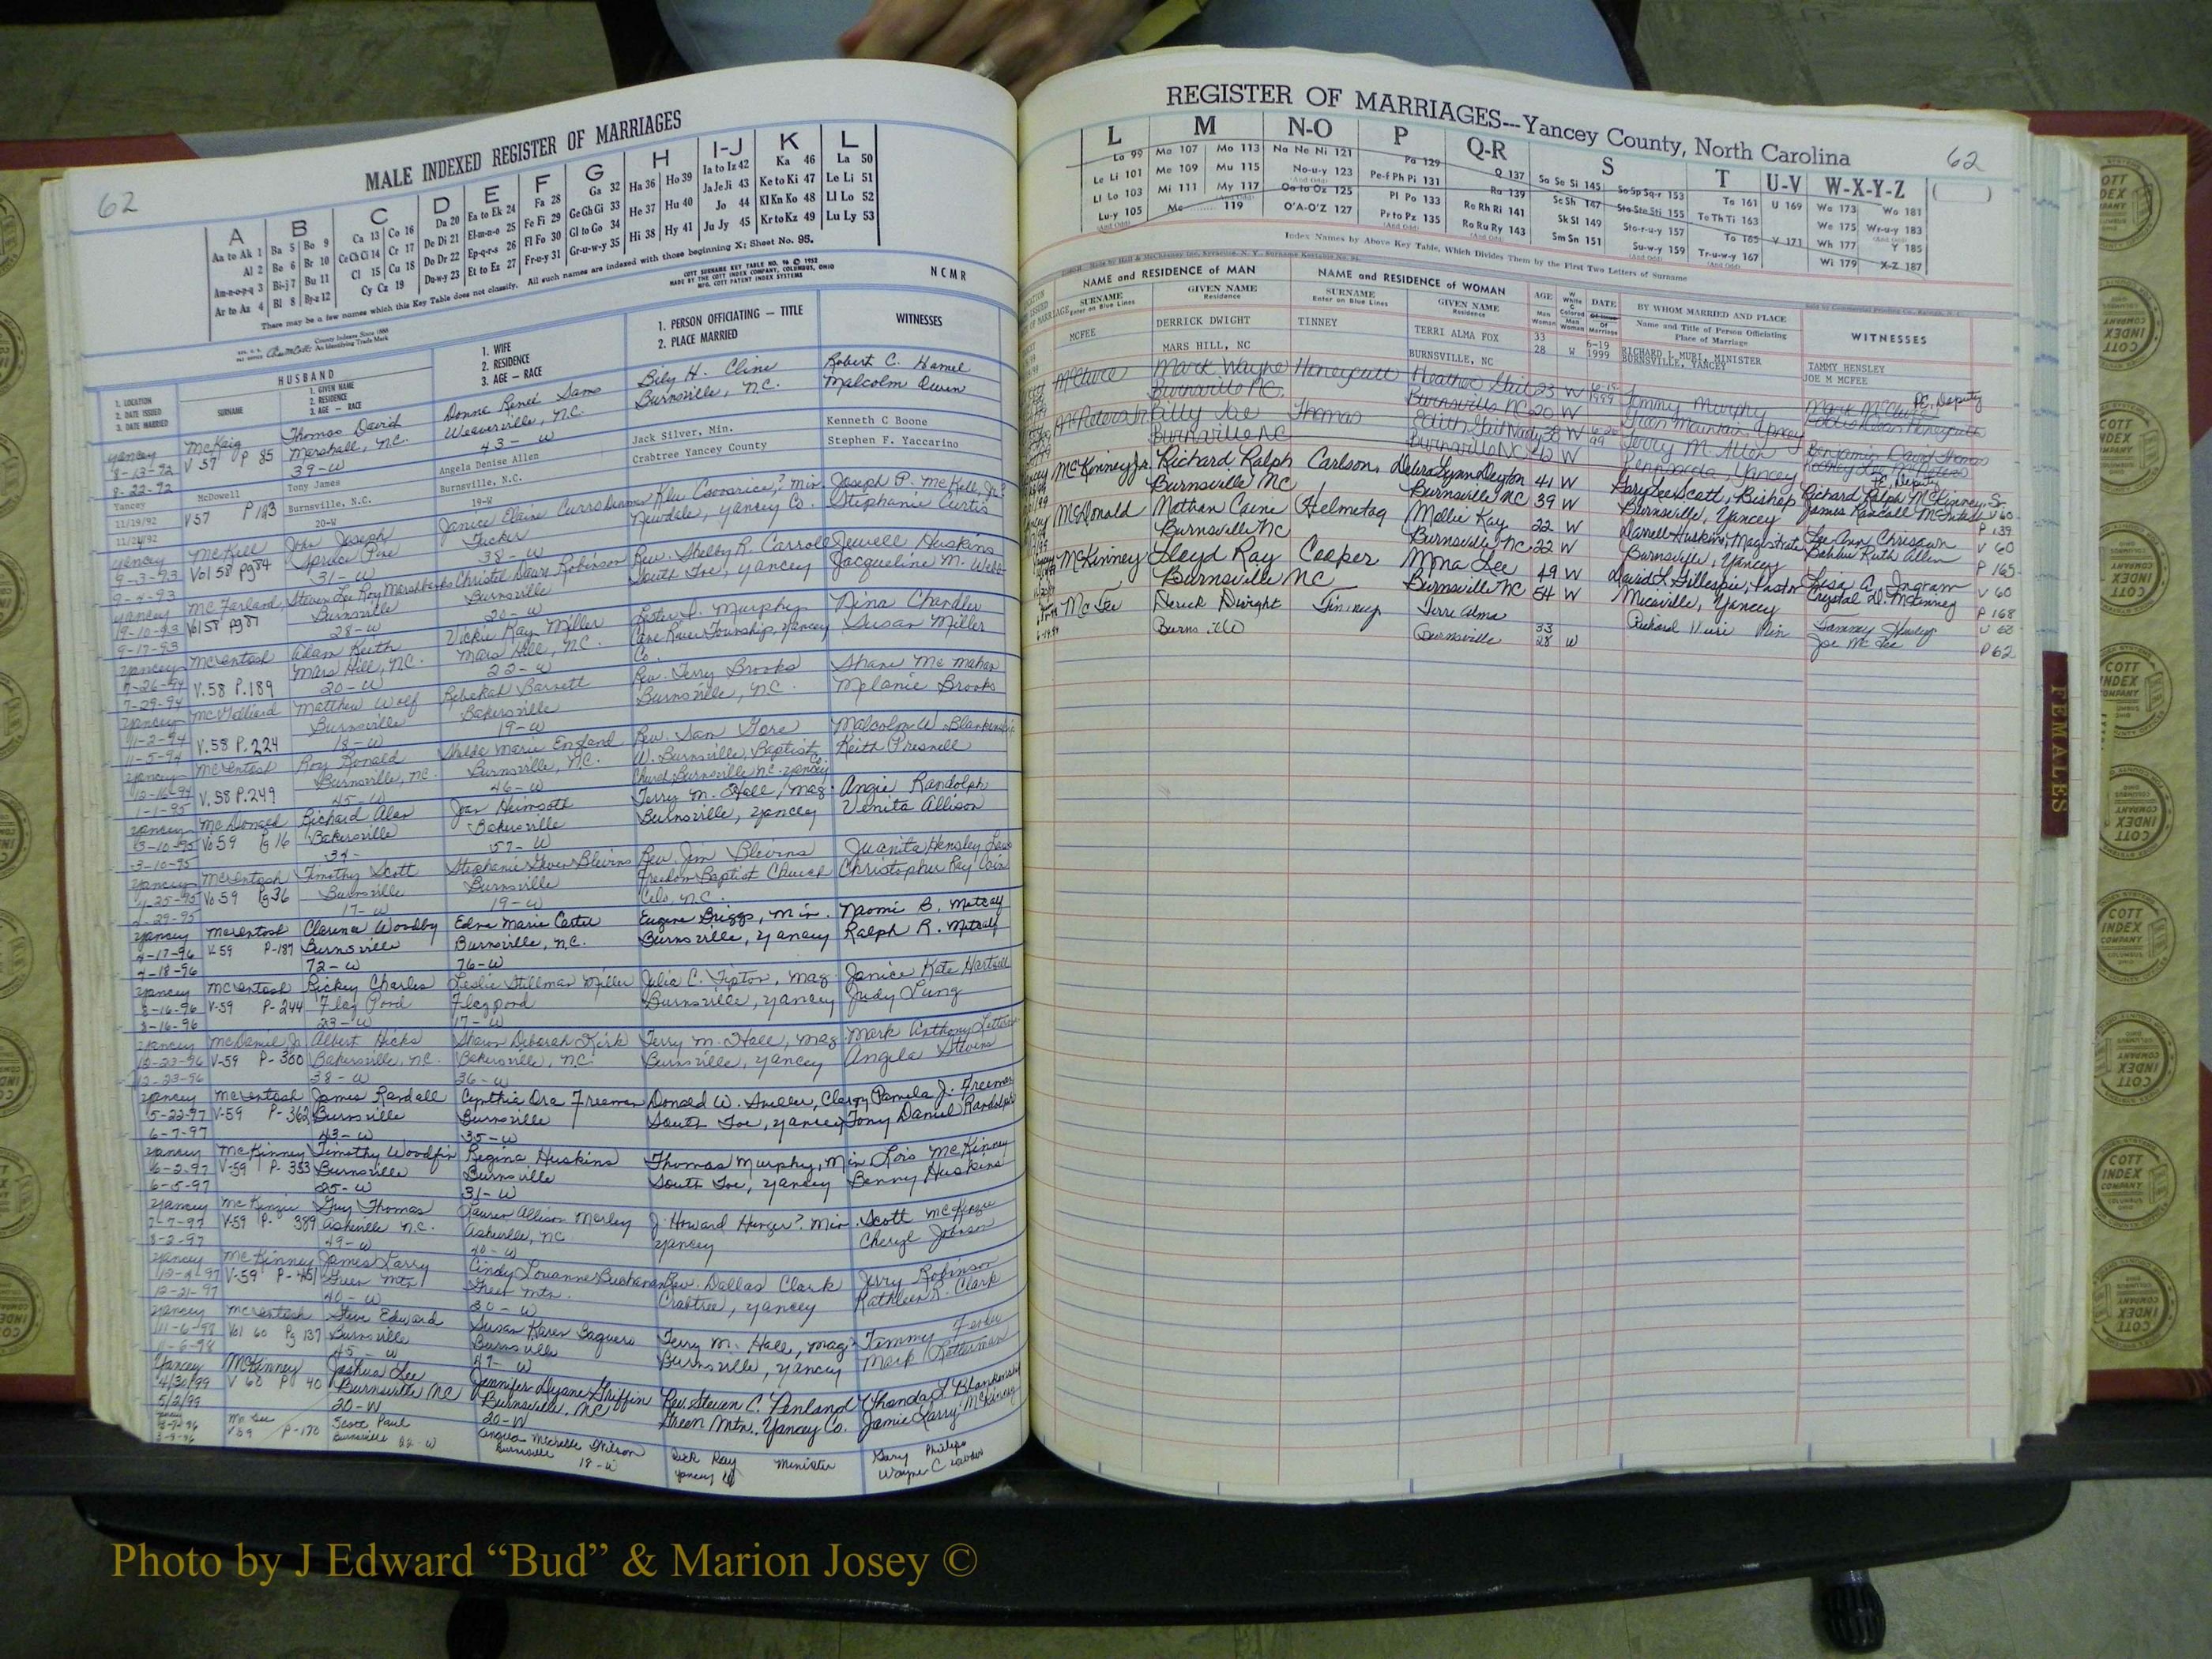 62
MALE INDEXED REGISTER OF MARRIAGES
A B C D E F G H I-J K L
Aa to Ak 1
Al 2
Am-n-o-p-q 3
Ar to Az 4
Ba 5 Bo 9
Be 6 Br 10
Bi-j 7 Bu 11
Bl 8 By-z 12
Ca 13 Co 16
Ce Ch Ci 14 Cr 17
Cl 15 Cu 18
Cy Cz 19
Da 20
De Di 21
Do Dr 22
Du-w-y 23
Ea to Ek 24
El-m-n-o 25
Ep-q-r-s 26
Et to Ez 27
Fa 28
Fe Fi 29
Fl Fo 30
Fr-u-y 31
Ga 32
Ge Gh Gi 33
Gl to Go 34
Gr-u-w-y 35
Ha 36 Ho 39
He 37 Hu 40
Hi 38 Hy 41
Ia to Iz 42
Ja Je Ji 43
Jo 44
Ju Jy 45
Ka 46
Ke to Ki 47
Kl Kn Ko 48
Kr to Kz 49
La 50
Le Li 51
Ll Lo 52
Lu Ly 53
There may be a few names which this Key Table does not classify. All such names are indexed with those beginning X; Sheet No. 95.
County Indexes Since 1888
An Identifying Trade Mark
COTT SURNAME KEY TABLE NO. 96 © 1952
MADE BY THE COTT INDEX COMPANY, COLUMBUS, OHIO
MFG. COTT PATENT INDEX SYSTEMS
NCMR
1. LOCATION
2. DATE ISSUED
3. DATE MARRIED
HUSBAND
SURNAME
1. GIVEN NAME
2. RESIDENCE
3. AGE — RACE
1. WIFE
2. RESIDENCE
3. AGE — RACE
1. PERSON OFFICIATING — TITLE
2. PLACE MARRIED
WITNESSES
Yancey McKaig Thomas David Donna Reneé Sams Bily H. Cline Robert C. Hamel
8-13-92 V 57 P 85 Marshall, N.C. Weaverville, N.C. Burnsville, N.C. Malcolm Owen
8-22-92 39-W 43-W
Yancey McDowell Tony James Angela Denise Allen Jack Silver, Min. Kenneth C Boone
11/19/92 V57 P123 Burnsville, N.C. Burnsville, N.C. Crabtree Yancey County Stephen F. Yaccarino
11/21/92 20-W 19-W
Yancey McKell John Joseph Janice Elaine Tucker Joseph P. McKell, Jr.
9-3-93 Vol 58 pg 84 Spruce Pine Newdale, Yancey Co. Stephanie Curtis
9-4-93 31-W 38-W
Yancey McFarland, Steven Lee Roy Marshbanks Christa Dawn Robinson Rev. Shelby R. Carroll Jewell Huskins
9-10-93 Vol 58 pg 87 Burnsville Burnsville South Toe, Yancey Jacqueline M. Webb
9-17-93 28-W 21-W
Yancey McEntosh Adam Keith Vickie Kay Miller Lester D. Murphy Nina Chandler
7-26-94 V.58 P.189 Mars Hill, N.C. Mars Hill, N.C. Cane River Township, Yancey Co. Susan Miller
7-29-94 20-W 22-W
Yancey McGalliard Matthew Wolf Rebekah Barnett Rev. Terry Brooks Shane McMahan
11-2-94 V.58 P.224 Burnsville Bakersville Burnsville, N.C. Melanie Brooks
11-5-94 18-W 19-W
Yancey McEntosh Roy Ronald Shelda Marie England Rev. Sam Gore Malcolm W. Blankenship
12-16-94 V.58 P.249 Burnsville, N.C. Burnsville, N.C. W. Burnsville Baptist Keith Presnell
1-1-95 45-W 46-W Church Burnsville N.C. Yancey Co.
Yancey McDonald Richard Alan Jean Heimsoth Terry M. Hall, Mag. Angie Randolph
3-10-95 Vo 59 Pg 16 Bakersville Bakersville Burnsville, Yancey Venita Allison
3-10-95 34- 57-W
Yancey McEntosh Timothy Scott Stephanie Blevins Rev. Jim Blevins Juanita Hensley Laws
4-25-95 Vo 59 Pg 36 Burnsville Burnsville Freedom Baptist Church Christopher Ray Cain
4-29-95 17-W 19-W Celo, N.C.
Yancey McEntosh Clarence Woodby Edna Marie Carter Eugene Briggs, Min. Naomi B. Metcalf
4-17-96 V-59 P-187 Burnsville Burnsville, N.C. Burnsville, Yancey Ralph R. Metcalf
4-18-96 72-W 76-W
Yancey McEntosh Rickey Charles Leslie Stillman Miller Julia C. Tipton, Mag. Janice Kate Hartsell
8-16-96 V-59 P-244 Flag Pond Flag pond Burnsville, Yancey Judy Lung
8-16-96 23-W 17-W
Yancey McDaniel Jr Albert Hicks Sharon Deborah Kirk Terry M. Hall, Mag. Mark Anthony
12-23-96 V-59 P-300 Bakersville, N.C. Bakersville, N.C. Burnsville, Yancey Angela Stevens
12-23-96 38-W 36-W
Yancey McEntosh James Randall Cynthia Ora Freeman Donald W. Sneller, Clergy Pamela J. Freeman
5-22-97 V-59 P-362 Burnsville Burnsville South Toe, Yancey Tony Daniel Randolph
6-7-97 43-W 35-W
Yancey McKinney Timothy Woodfin Regina Huskins Thomas Murphy, Min Lois McKinney
6-2-97 V-59 P-353 Burnsville Burnsville South Toe, Yancey Benny Huskins
6-5-97 25-W 31-W
Yancey McKenzie Guy Thomas Lauren Allison Morley J. Howard Hunger? Min. Scott McKenzie
7-7-97 V-59 P-389 Asheville N.C. Asheville, NC Yancey Cheryl Johnson
8-2-97 49-W 40-W
Yancey McKinney James Larry Cindy Louanne Buchanan Rev. Dallas Clark Jerry Robinson
12-4-97 V-59 P-451 Green Mtn Green Mtn. Crabtree, Yancey Kathleen R. Clark
12-21-97 40-W 30-W
Yancey McEntosh Steve Edward Susan Karen Saguero Terry M. Hall, Mag. Tammy
11-6-98 Vol 60 Pg 137 Burnsville Burnsville Burnsville, Yancey Mark Letterman
11-6-98 45-W 47-W
Yancey McKinney Joshua Lee Jennifer Dyane Griffin Rev. Steven C. Penland Rhonda L Blankenship
4/30/99 V 60 P 40 Burnsville NC Burnsville, NC Green Mtn., Yancey Co. Jamie Larry McKinney
5/2/99 20-W 20-W
Yancey McGee Scott Paul Angela Michelle Wilson Rick Ray Minister Gary Phillips
V59 P-170 Burnsville 22-W Burnsville 18-W Yancey Co Wayne C
REGISTER OF MARRIAGES---Yancey County, North Carolina
62
L M N-O P Q-R S T U-V W-X-Y-Z
La 99
Le Li 101
Ll Lo 103
Lu-y 105
Ma 107 Mo 113
Me 109 Mu 115
Mi 111 My 117
Mc 119
Na Ne Ni 121
No-u-y 123
Oa to Oz 125
O'A-O'Z 127
Pa 129
Pe-f Ph Pi 131
Pl Po 133
Pr to Pz 135
Q 137
Ra 139
Re Rh Ri 141
Ro Ru Ry 143
Sa Se Si 145 So Sp Sq-r 153
Sc Sh 147 Sta Ste Sti 155
Sk Sl 149 Sto-r-u-y 157
Sm Sn 151 Su-w-y 159
Ta 161
Te Th Ti 163
To 165
Tr-u-w-y 167
U 169
V 171
Wa 173 Wo 181
We 175 Wr-u-y 183
Wh 177 Y 185
Wi 179 X-Z 187
Index Names by Above Key Table, Which Divides Them by the First Two Letters of Surname
NAME and RESIDENCE OF MAN
SURNAME
Enter on Blue Lines
GIVEN NAME
Residence
NAME and RESIDENCE OF WOMAN
SURNAME
Enter on Blue Lines
GIVEN NAME
Residence
AGE
Man
Woman
W White
C Colored
Man
Woman
DATE
Of
Marriage
BY WHOM MARRIED AND PLACE
Name and Title of Person Officiating
Place of Marriage
WITNESSES
MCFEE DERRICK DWIGHT TINNEY TERRI ALMA FOX 33 6-19 RICHARD L MURI, MINISTER TAMMY HENSLEY
MARS HILL, NC BURNSVILLE, NC 28 W 1999 BURNSVILLE, YANCEY JOE M MCFEE
McClure Mark Wayne Honeycutt Heather Gail 23 W 1999 Tommy Murphy Mark McClure
Burnsville NC Burnsville NC 20 W Green Mountain, Yancey
McPeters Jr Billy Joe Thomas Edith Gail 38 W 99 Jerry M. Allen Benjamin David Thomas
Burnsville NC Burnsville NC W Pensacola, Yancey
McKinney Jr. Richard Ralph Carlson Debra Lynn Deyton 41 W Gary Lee Scott, Bishop Richard Ralph McKinney, Sr.
Burnsville NC Burnsville NC 39 W Burnsville, Yancey James Randall McIntosh V 60
McDonald Nathan Caine Helmetag Mollie Kay 22 W Darrell Huskins, Magistrate Lee Ann Chrisawn P 139
Burnsville NC Burnsville NC 22 W Burnsville, Yancey Bobbie Ruth Allen V 60
McKinney Lloyd Ray Cooper Mona Lee 49 W David L. Gillespie, Pastor Lisa A. Ingram P 165
Burnsville NC Burnsville NC 54 W Micaville, Yancey Crystal D. McKinney V 60
P 168
McFee Derick Dwight Tinney Terri Alma 33 Richard Muri Min Tammy Hensley V 60
Burnsville 28 W Joe McFee P 62
FEMALES
COTT INDEX COMPANY
Photo by J Edward “Bud” & Marion Josey ©